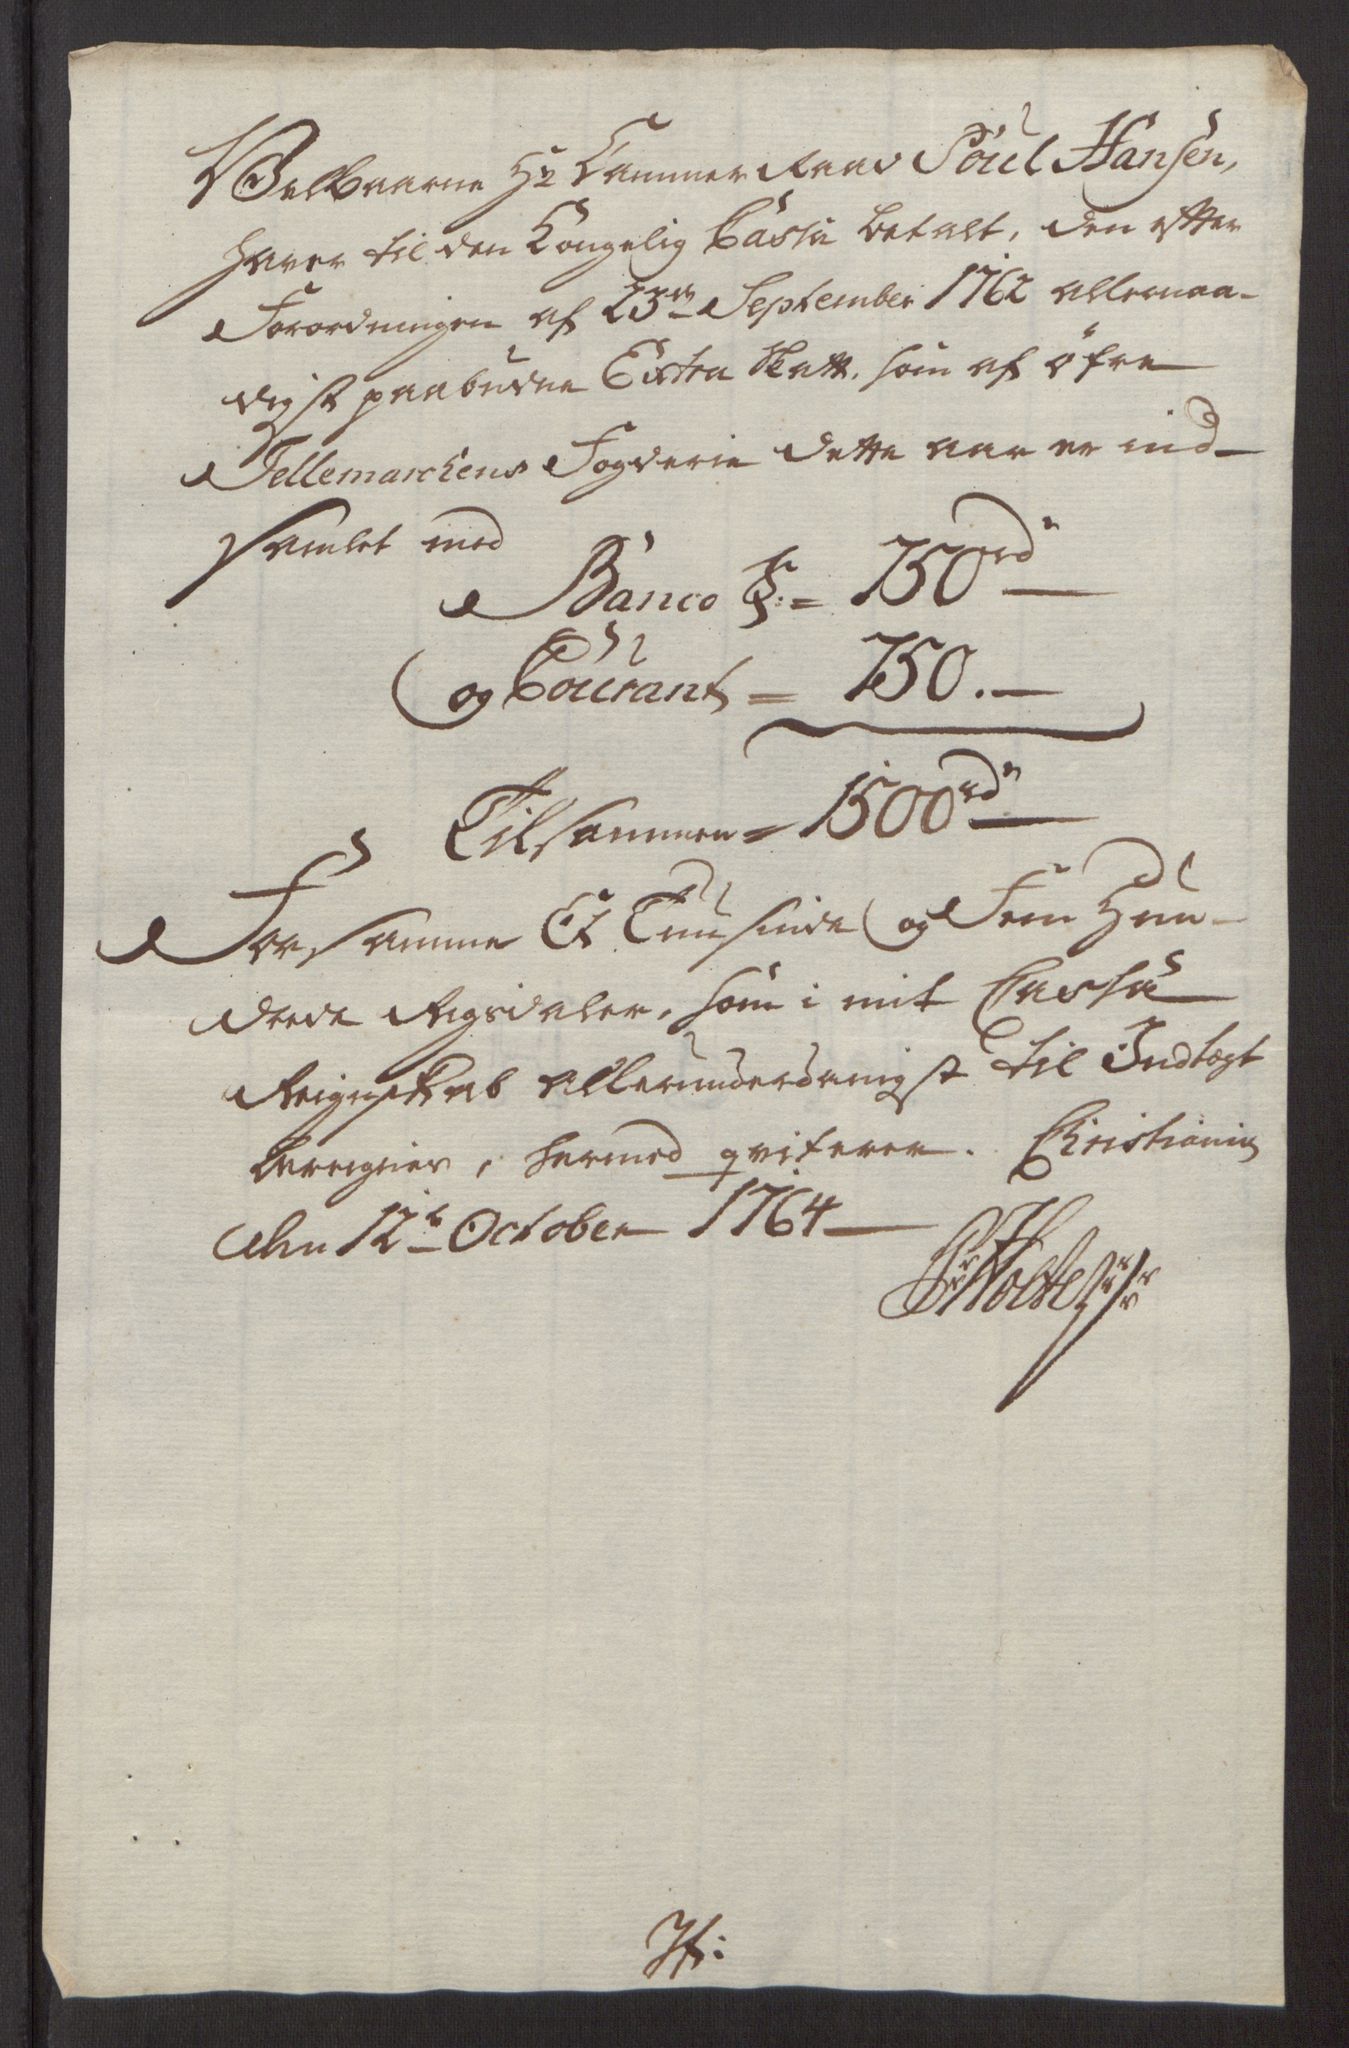 Velbaarne Hr Cammer Raad Poul Hansen,
haver til den Kongelig Cassa betalt, den efter
Forordningen af 23de September 1762 allernaa-
digst paabudne Extra Skatt, som af öfre
Tellemarckens Fogderie dette aar er ind-
samlet med
Banco = 750 rd
og Courant = 750.
Tilsammen = 1500 rd
For samme Et Tuusinde og Fem Hun-
drede Rigsdaler, som i mit Cassa
Reignskab allerunderdanigst til Indtægt
bereignes, hermed qviterer. Christiania
den 12te October 1764
Holte